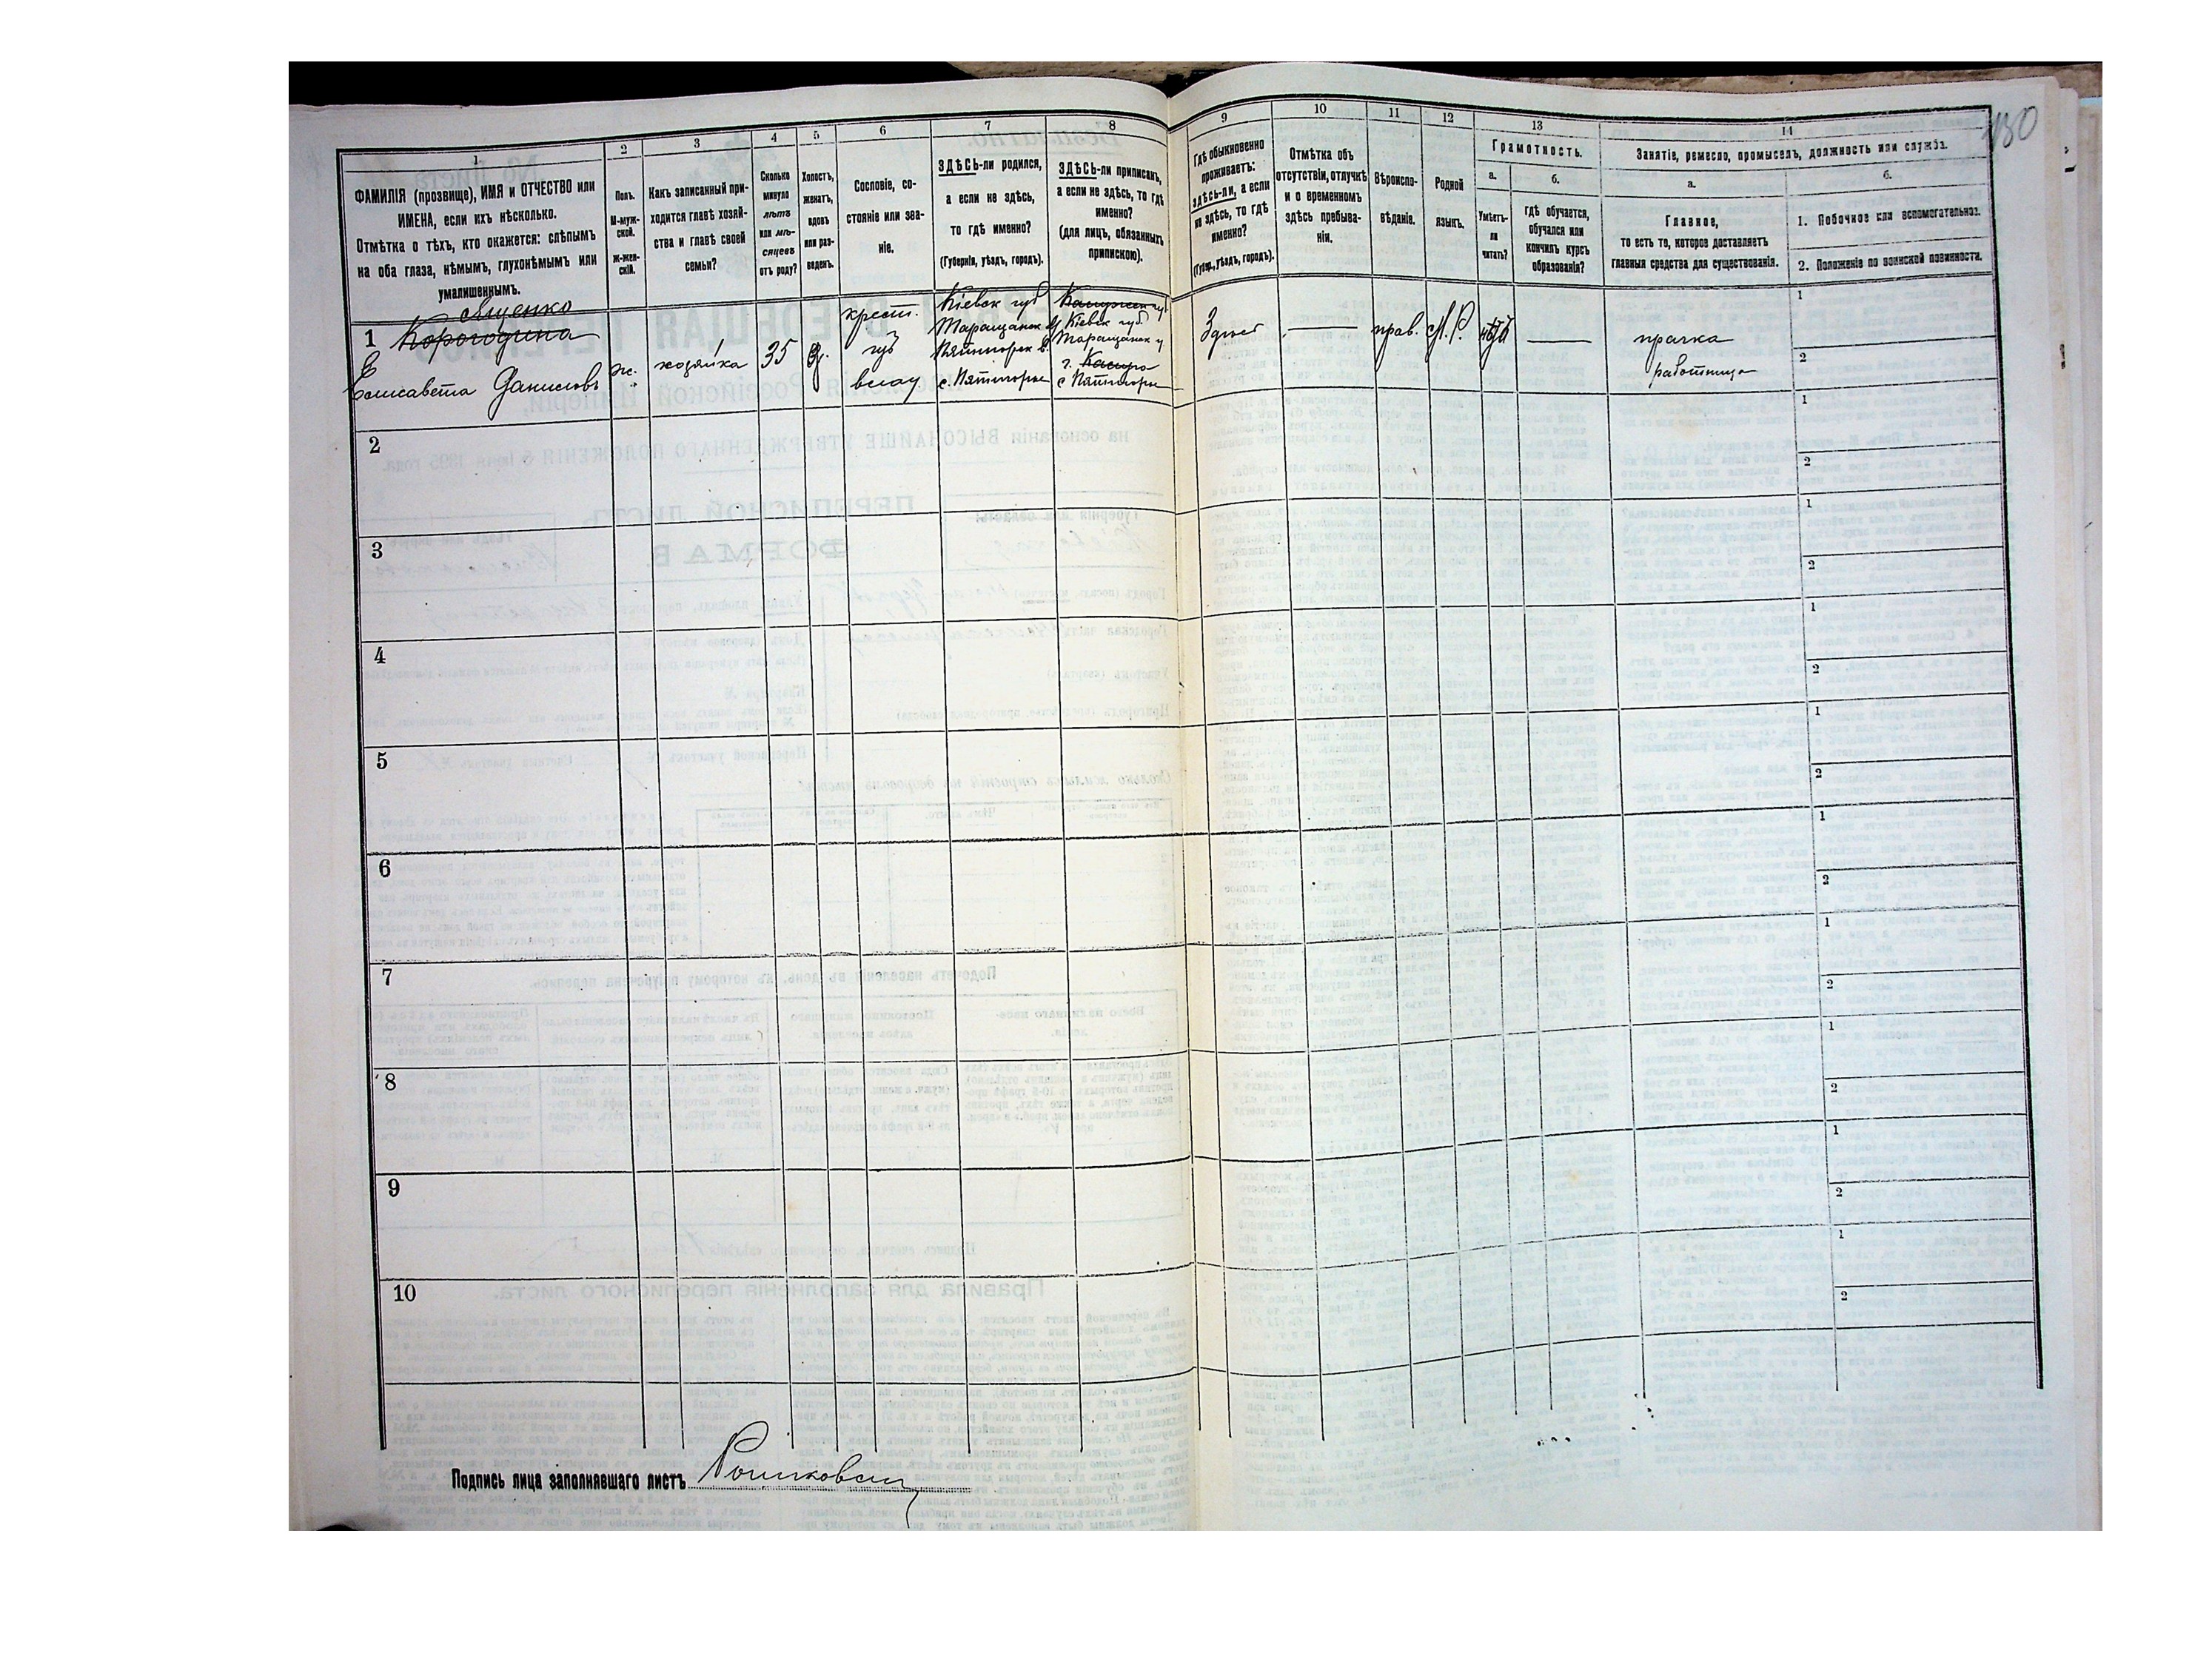 180
1 2 3 4 5 6 7 8 9 10 11 12 13 14
ФАМИЛІЯ (прозвище), ИМЯ и ОТЧЕСТВО или
ИМЕНА, если ихъ нѣсколько.
Отмѣтка о тѣхъ, кто окажется: слѣпымъ
на оба глаза, нѣмымъ, глухонѣмымъ или
умалишеннымъ.
Полъ.
М-муж-
ской.
Ж-жен-
скій.
Какъ записанный при-
ходится главѣ хозяй-
ства и главѣ своей
семьи?
Сколько
минуло
лѣтъ
или мѣ-
сяцевъ
отъ роду?
Холостъ,
женатъ,
вдовъ
или раз-
веденъ.
Сословіе, со-
стояніе или зва-
ніе.
ЗДѢСЬ-ли родился,
а если не здѣсь,
то гдѣ именно?
(Губернія, уѣздъ, городъ).
ЗДѢСЬ-ли приписанъ,
а если не здѣсь, то гдѣ
именно?
(для лицъ, обязанныхъ
припискою).
Гдѣ обыкновенно
проживаетъ:
здѣсь-ли, а если
не здѣсь, то гдѣ
именно?
(Губер., уѣздъ, городъ).
Отмѣтка объ
отсутствіи, отлучкѣ
и о временномъ
здѣсь пребыва-
ніи.
Вѣроиспо-
вѣданіе.
Родной
языкъ.
Грамотность.
а.
Умѣетъ-
ли
читать?
б.
гдѣ обучается,
обучался или
кончилъ курсъ
образованія?
Занятіе, ремесло, промыселъ, должность или служба.
а.
Главное,
то есть то, которое доставляетъ
главныя средства для существованія.
б.
1. Побочное или вспомогательное.
2. Положеніе по воинской повинности.
1
Корогодина
Елисавета Данилова
ж.
хозяйка
35
крест.
Кіевск губ
Таращанск у
с. Пятигоры
Кіевск губ
Таращанск у
г. Кашира
с Пятигоры
Здѣсь
—
прав.
М. Р.
—
прачка
работница
1
2
2
1
2
3
1
2
4
1
2
5
1
2
6
1
2
7
1
2
8
1
2
9
1
2
10
1
2
Подпись лица заполнявшаго листъ